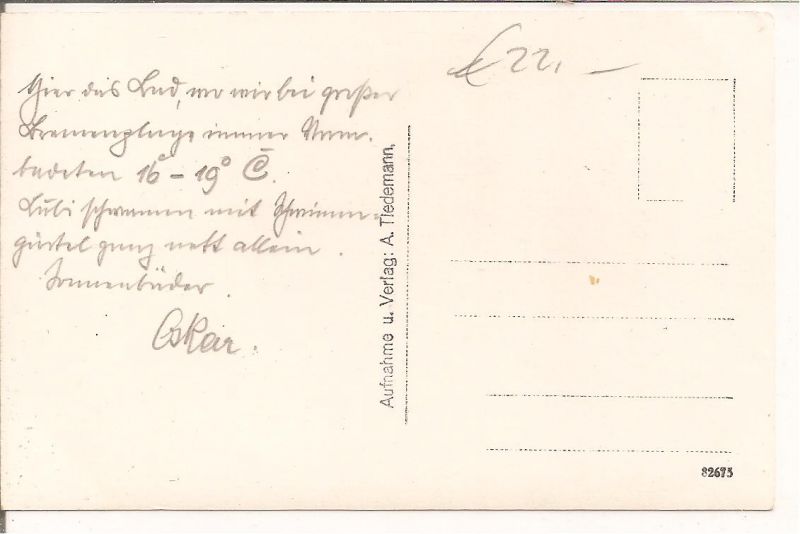 Hier das Bad, wo wir bei großer
Bremenplage immer
badeten 16° – 19° C.
Lübi schwamm mit Schwimm=
gürtel ganz nett allein.
Sonnenbäder.
Oskar.
22,—
Aufnahme u. Verlag: A. Tiedemann,
82675